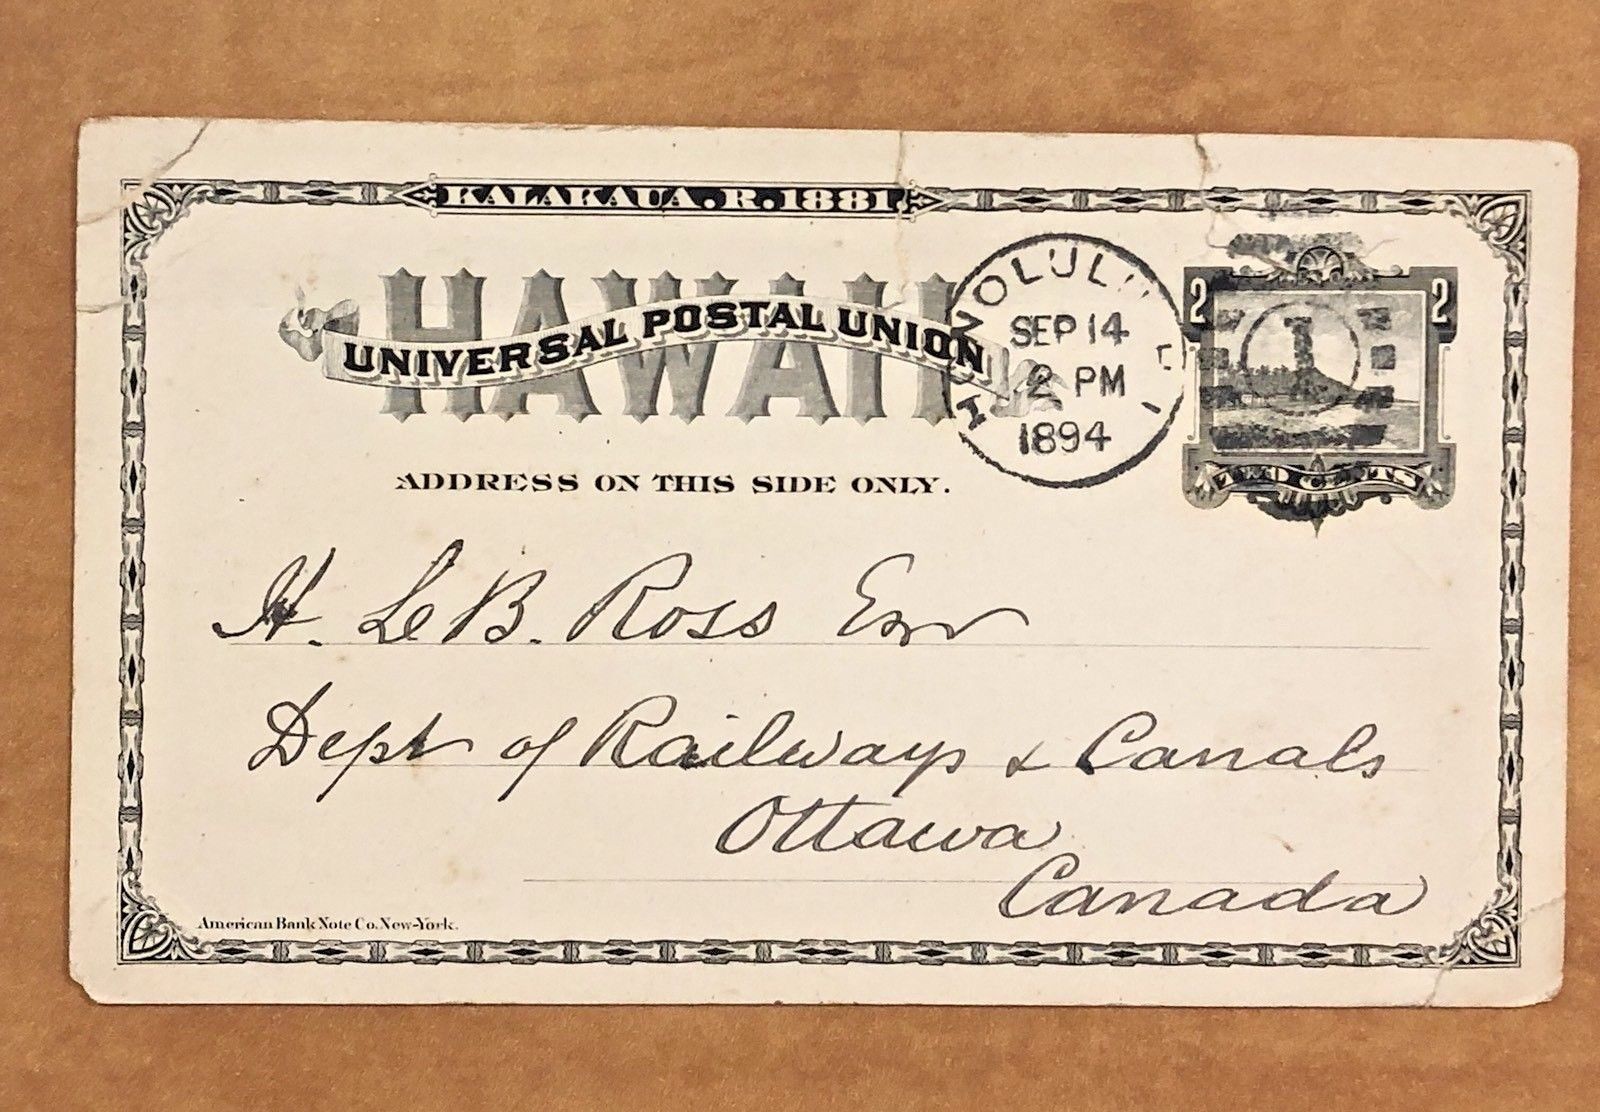 KALAKAUA.R.1881.
HAWAII
UNIVERSAL POSTAL UNION
HONOLULU
SEP 14
2 PM
1894
2 2
1
TWO CENTS
ADDRESS ON THIS SIDE ONLY.
H. Le B. Ross Esq
Dept of Railways & Canals
Ottawa
Canada
American Bank Note Co. New-York.